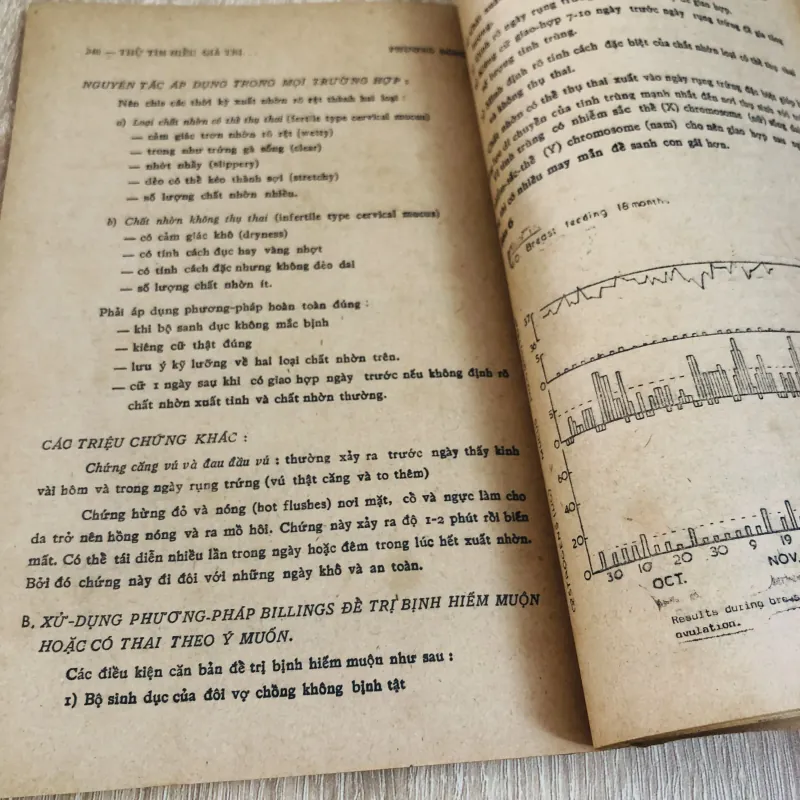 240 — THỬ TÌM HIỂU GIÁ TRỊ
PHƯƠNG ĐÔNG
NGUYÊN TẮC ÁP DỤNG TRONG MỌI TRƯỜNG HỢP :
Nên chia các thời kỳ xuất nhờn rõ rệt thành hai loại :
a) Loại chất nhờn có thể thụ thai (fertile type cervical mucus)
— cảm giác trơn nhờn rõ rệt (wetty)
— trong như trứng gà sống (clear)
— nhớt nhầy (slippery)
— dẻo có thể kéo thành sợi (stretchy)
— số lượng chất nhờn nhiều.
b) Chất nhờn không thụ thai (infertile type cervical mucus)
— có cảm giác khô (dryness)
— có tính cách đục hay vàng nhợt
— có tính cách đặc nhưng không dẻo dai
— số lượng chất nhờn ít.
Phải áp dụng phương-pháp hoàn toàn đúng :
— khi bộ sanh dục không mắc bịnh
— kiêng cữ thật đúng
— lưu ý kỹ lưỡng về hai loại chất nhờn trên.
— cữ 1 ngày sau khi có giao hợp ngày trước nếu không định rõ
chất nhờn xuất tinh và chất nhờn thường.
CÁC TRIỆU CHỨNG KHÁC :
Chứng căng vú và đau đầu vú : thường xảy ra trước ngày thấy kinh
vài hôm và trong ngày rụng trứng (vú thật căng và to thêm)
Chứng hừng đỏ và nóng (hot flushes) nơi mặt, cổ và ngực làm cho
da trở nên hồng nóng và ra mồ hôi. Chứng này xảy ra độ 1-2 phút rồi biến
mất. Có thể tái diễn nhiều lần trong ngày hoặc đêm trong lúc hết xuất nhờn.
Bởi đó chứng này đi đôi với những ngày khô và an toàn.
B. XỬ-DỤNG PHƯƠNG-PHÁP BILLINGS ĐỂ TRỊ BỊNH HIẾM MUỘN
HOẶC CÓ THAI THEO Ý MUỐN.
Các điều kiện căn bản để trị bịnh hiếm muộn như sau :
1) Bộ sinh dục của đôi vợ chồng không bịnh tật
rõ ngày rụng trứng
cữ giao-hợp 7-10 ngày trước ngày rụng trứng để gia tăng
số lượng tinh trùng.
định rõ tính cách đặc biệt của chất nhờn loại có thể thụ thai
và không thụ thai.
Chất nhờn có thể thụ thai xuất vào ngày rụng trứng đặc biệt giúp
di chuyển của tinh trùng mạnh nhất đến nơi thụ tinh với
tinh trùng có nhiễm sắc thể (X) chromosome (nữ) sống
sắc-thể (Y) chromosome (nam) cho nên giao hợp sau
có nhiều may mắn để sanh con gái hơn.
6
Breast feeding 18 month.
37
36
5
0
5
0
60
40
20
30 10 20 30 9 19
OCT. NOV.
Results during breas
ovulation.